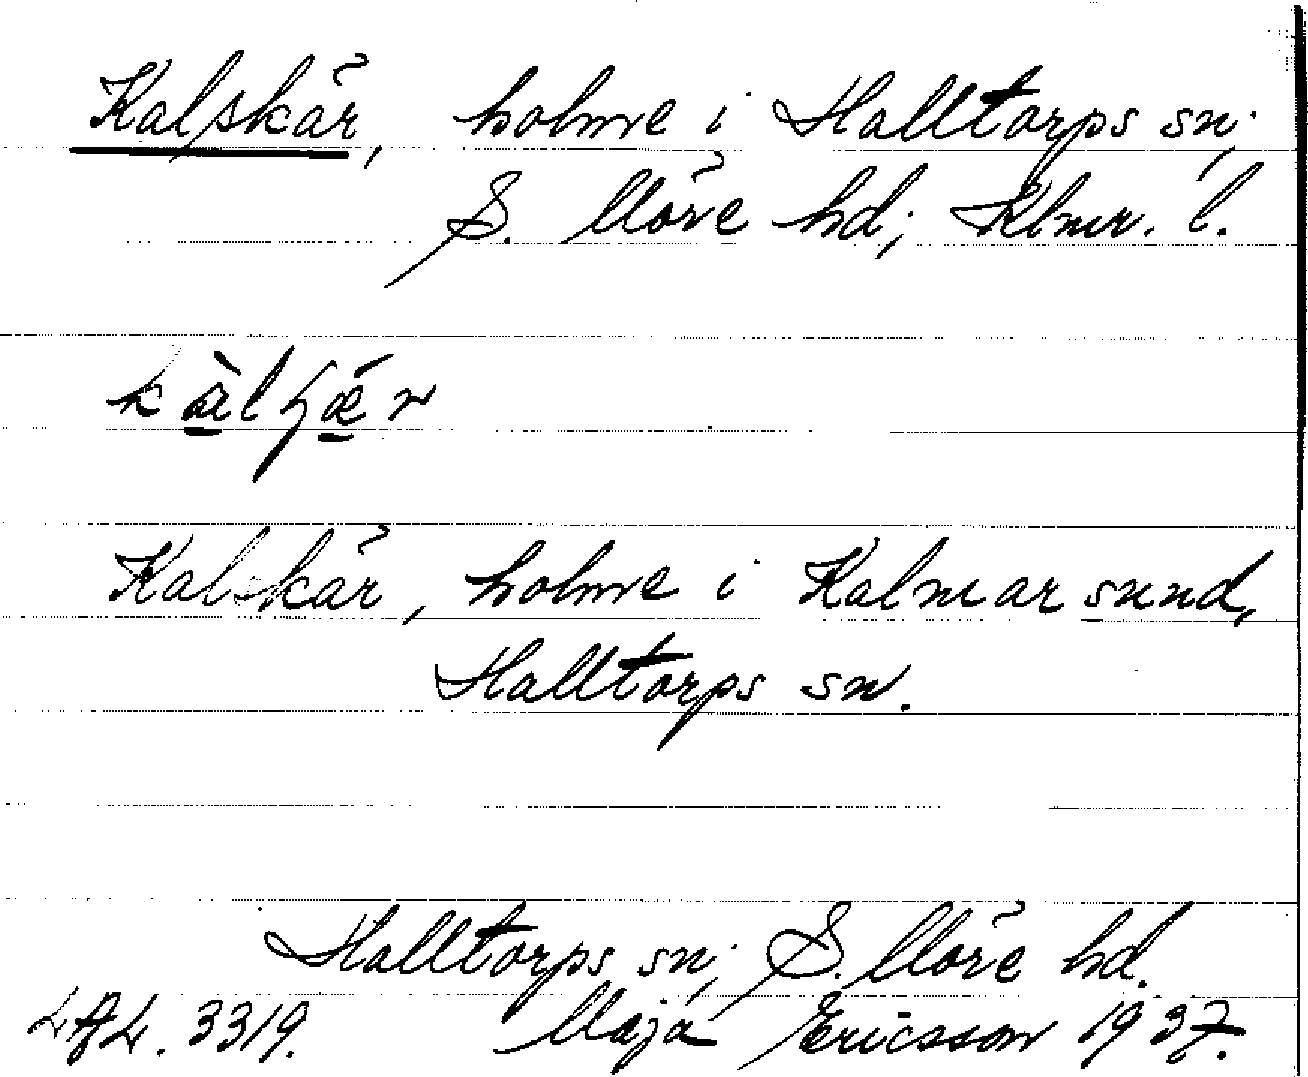 Kalskär, holme i Halltorps sn;
S. Möre hd; Klmr. l.
Kalskär, holme i Kalmarsund,
Halltorps sn.
Halltorps sn; S. Möre hd.
3319. Maja Ericsson 1937.